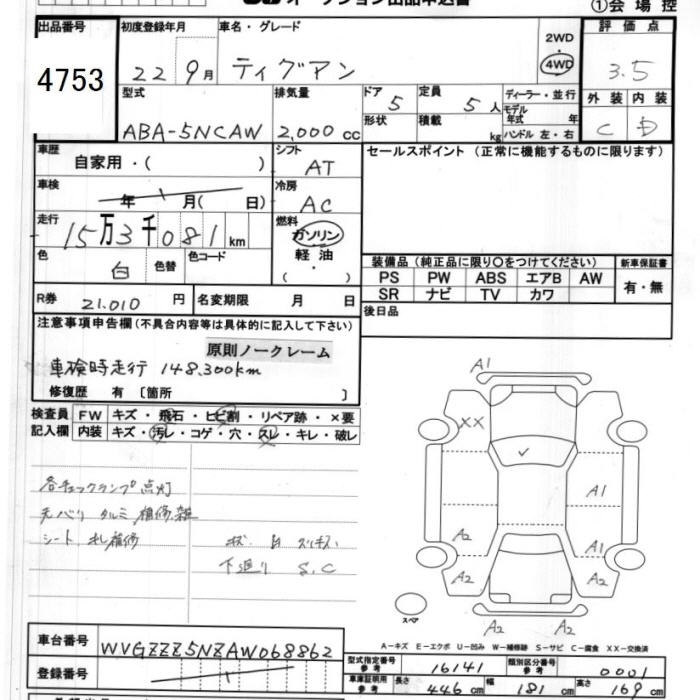 オークション出品申込書
①会場控
出品番号 4753
初度登録年月 22 9月
車名・グレード ティグアン
2WD
4WD
評価点 3.5
外装 内装
C D
型式 ABA-5NCAW
排気量 2,000 cc
ドア 5
形状
定員 5人
積載 kg
ディーラー・並行
モデル年式 年
ハンドル 左・右
車歴 自家用・( )
シフト AT
セールスポイント (正常に機能するものに限ります)
車検 年 月( 日)
冷房 AC
走行 15万3千081km
燃料 ガソリン
軽油
( )
色 白 色替 色コード
装備品 (純正品に限り○をつけてください)
新車保証書
PS PW ABS エアB AW
SR ナビ TV カワ
有・無
R券 21.010 円
名変期限 月 日
後日品
注意事項申告欄(不具合内容等は具体的に記入して下さい)
原則ノークレーム
車検時走行 148.300km
修復歴 有 〔箇所 〕
検査員記入欄
FW キズ・飛石・ヒビ割・リペア跡・×要
内装 キズ・汚レ・コゲ・穴・スレ・キレ・破レ
各チェックランプ点灯
天バリ タルミ 補修雑
シート 補修
下廻り S.C
A1
XX
A1
A2 A1
A2 A2
A2 A2
スペア
A-キズ E-エクボ U-凹み W-補修跡 S-サビ C-腐食 XX-交換済
車台番号 WVGZZZ5NZAW068862
登録番号
型式指定番号 参考 16141
類別区分番号 参考 0001
車庫証明用 参考 長さ 446cm 幅 181cm 高さ 169cm